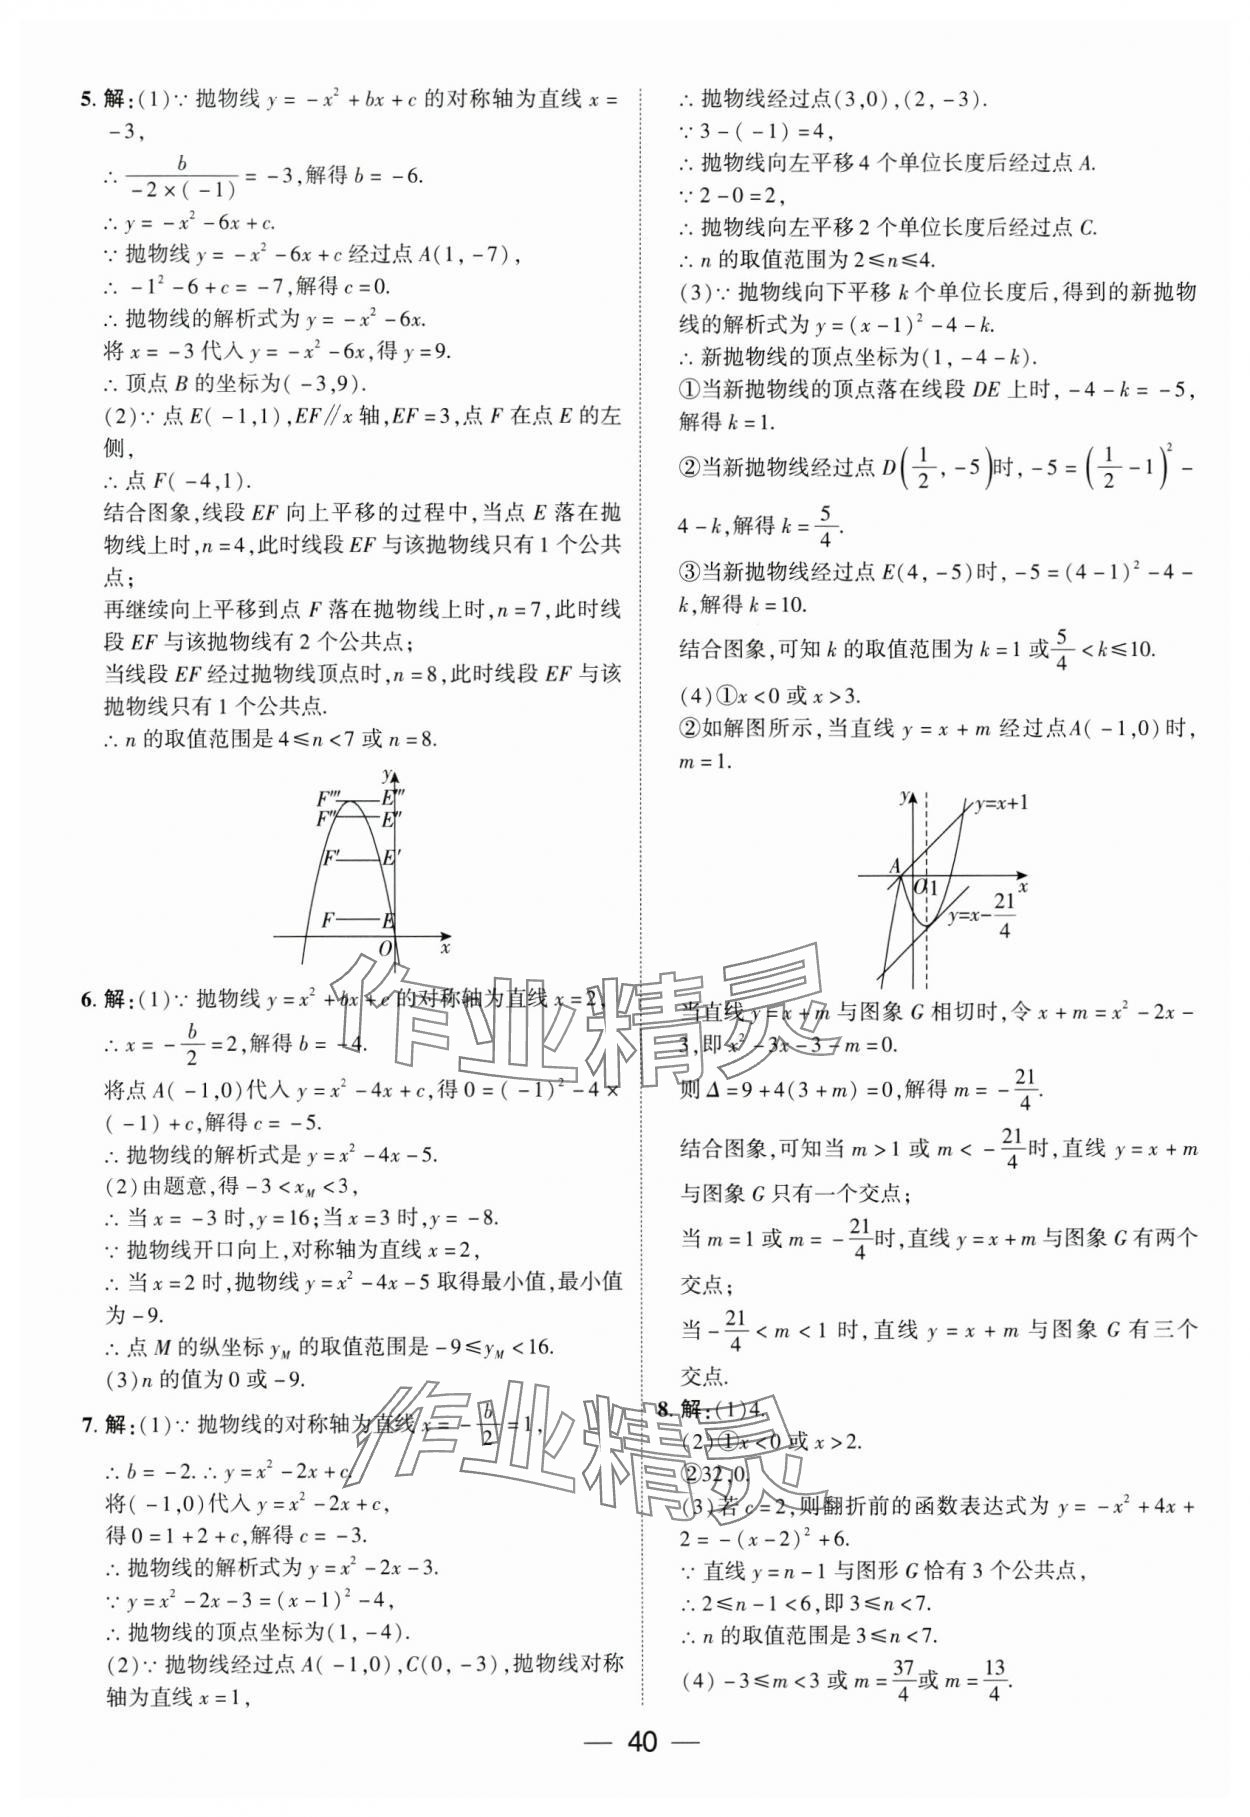 5. 解:(1)∵ 抛物线 y = -x² + bx + c 的对称轴为直线 x =
-3,
∴ b/(-2×(-1)) = -3,解得 b = -6.
∴ y = -x² - 6x + c.
∵ 抛物线 y = -x² - 6x + c 经过点 A(1, -7),
∴ -1² - 6 + c = -7,解得 c = 0.
∴ 抛物线的解析式为 y = -x² - 6x.
将 x = -3 代入 y = -x² - 6x,得 y = 9.
∴ 顶点 B 的坐标为( -3,9).
(2)∵ 点 E( -1,1),EF∥x 轴,EF = 3,点 F 在点 E 的左
侧,
∴ 点 F( -4,1).
结合图象,线段 EF 向上平移的过程中,当点 E 落在抛
物线上时,n = 4,此时线段 EF 与该抛物线只有 1 个公共
点;
再继续向上平移到点 F 落在抛物线上时,n = 7,此时线
段 EF 与该抛物线有 2 个公共点;
当线段 EF 经过抛物线顶点时,n = 8,此时线段 EF 与该
抛物线只有 1 个公共点.
∴ n 的取值范围是 4 ≤ n < 7 或 n = 8.
y
F''' E'''
F'' E''
F' E'
F E
O x
6. 解:(1)∵ 抛物线 y = x² + bx + c 的对称轴为直线 x = 2,
∴ x = -b/2 = 2,解得 b = -4.
将点 A( -1,0)代入 y = x² - 4x + c,得 0 = ( -1)² - 4 ×
( -1) + c,解得 c = -5.
∴ 抛物线的解析式是 y = x² - 4x - 5.
(2)由题意,得 -3 < x_M < 3,
∴ 当 x = -3 时,y = 16;当 x = 3 时,y = -8.
∵ 抛物线开口向上,对称轴为直线 x = 2,
∴ 当 x = 2 时,抛物线 y = x² - 4x - 5 取得最小值,最小值
为 -9.
∴ 点 M 的纵坐标 y_M 的取值范围是 -9 ≤ y_M < 16.
(3)n 的值为 0 或 -9.
7. 解:(1)∵ 抛物线的对称轴为直线 x = -b/2 = 1,
∴ b = -2. ∴ y = x² - 2x + c.
将( -1,0)代入 y = x² - 2x + c,
得 0 = 1 + 2 + c,解得 c = -3.
∴ 抛物线的解析式为 y = x² - 2x - 3.
∵ y = x² - 2x - 3 = (x - 1)² - 4,
∴ 抛物线的顶点坐标为(1, -4).
(2)∵ 抛物线经过点 A( -1,0),C(0, -3),抛物线对称
轴为直线 x = 1,
∴ 抛物线经过点(3,0),(2, -3).
∵ 3 - ( -1) = 4,
∴ 抛物线向左平移 4 个单位长度后经过点 A.
∵ 2 - 0 = 2,
∴ 抛物线向左平移 2 个单位长度后经过点 C.
∴ n 的取值范围为 2 ≤ n ≤ 4.
(3)∵ 抛物线向下平移 k 个单位长度后,得到的新抛物
线的解析式为 y = (x - 1)² - 4 - k.
∴ 新抛物线的顶点坐标为(1, -4 - k).
①当新抛物线的顶点落在线段 DE 上时, -4 - k = -5,
解得 k = 1.
②当新抛物线经过点 D(1/2, -5)时, -5 = (1/2 - 1)² -
4 - k,解得 k = 5/4.
③当新抛物线经过点 E(4, -5)时, -5 = (4 - 1)² - 4 -
k,解得 k = 10.
结合图象,可知 k 的取值范围为 k = 1 或 5/4 < k ≤ 10.
(4)①x < 0 或 x > 3.
②如解图所示,当直线 y = x + m 经过点A( -1,0)时,
m = 1.
y y=x+1
A
O 1 x
y=x-21/4
当直线 y = x + m 与图象 G 相切时,令 x + m = x² - 2x -
3,即 x² - 3x - 3 - m = 0.
则 Δ = 9 + 4(3 + m) = 0,解得 m = -21/4.
结合图象,可知当 m > 1 或 m < -21/4 时,直线 y = x + m
与图象 G 只有一个交点;
当 m = 1 或 m = -21/4 时,直线 y = x + m 与图象 G 有两个
交点;
当 -21/4 < m < 1 时,直线 y = x + m 与图象 G 有三个
交点.
8. 解:(1)4.
(2)①x < 0 或 x > 2.
②32,0.
(3)若 c = 2,则翻折前的函数表达式为 y = -x² + 4x +
2 = -(x - 2)² + 6.
∵ 直线 y = n - 1 与图形 G 恰有 3 个公共点,
∴ 2 ≤ n - 1 < 6,即 3 ≤ n < 7.
∴ n 的取值范围是 3 ≤ n < 7.
(4) -3 ≤ m < 3 或 m = 37/4 或 m = 13/4.
作业精灵
作业精灵
— 40 —